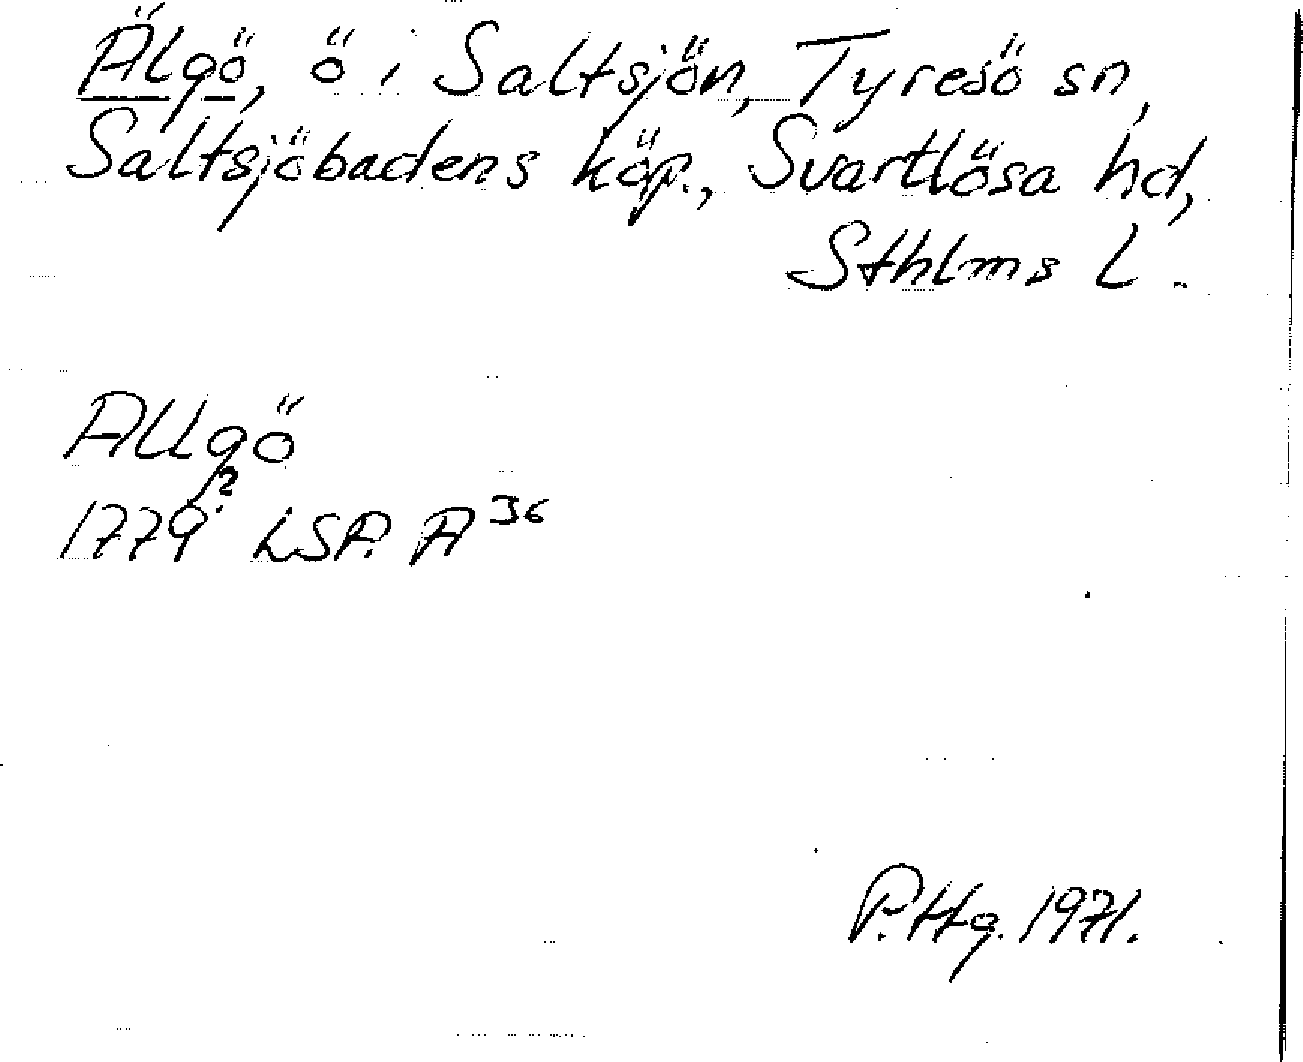 Älgö, ö i Saltsjön, Tyresö sn,
Saltsjöbadens köp., Svartlösa hd,
Sthlms L.
Allgö
1779? LSA. A 36
P.Hg. 1971.